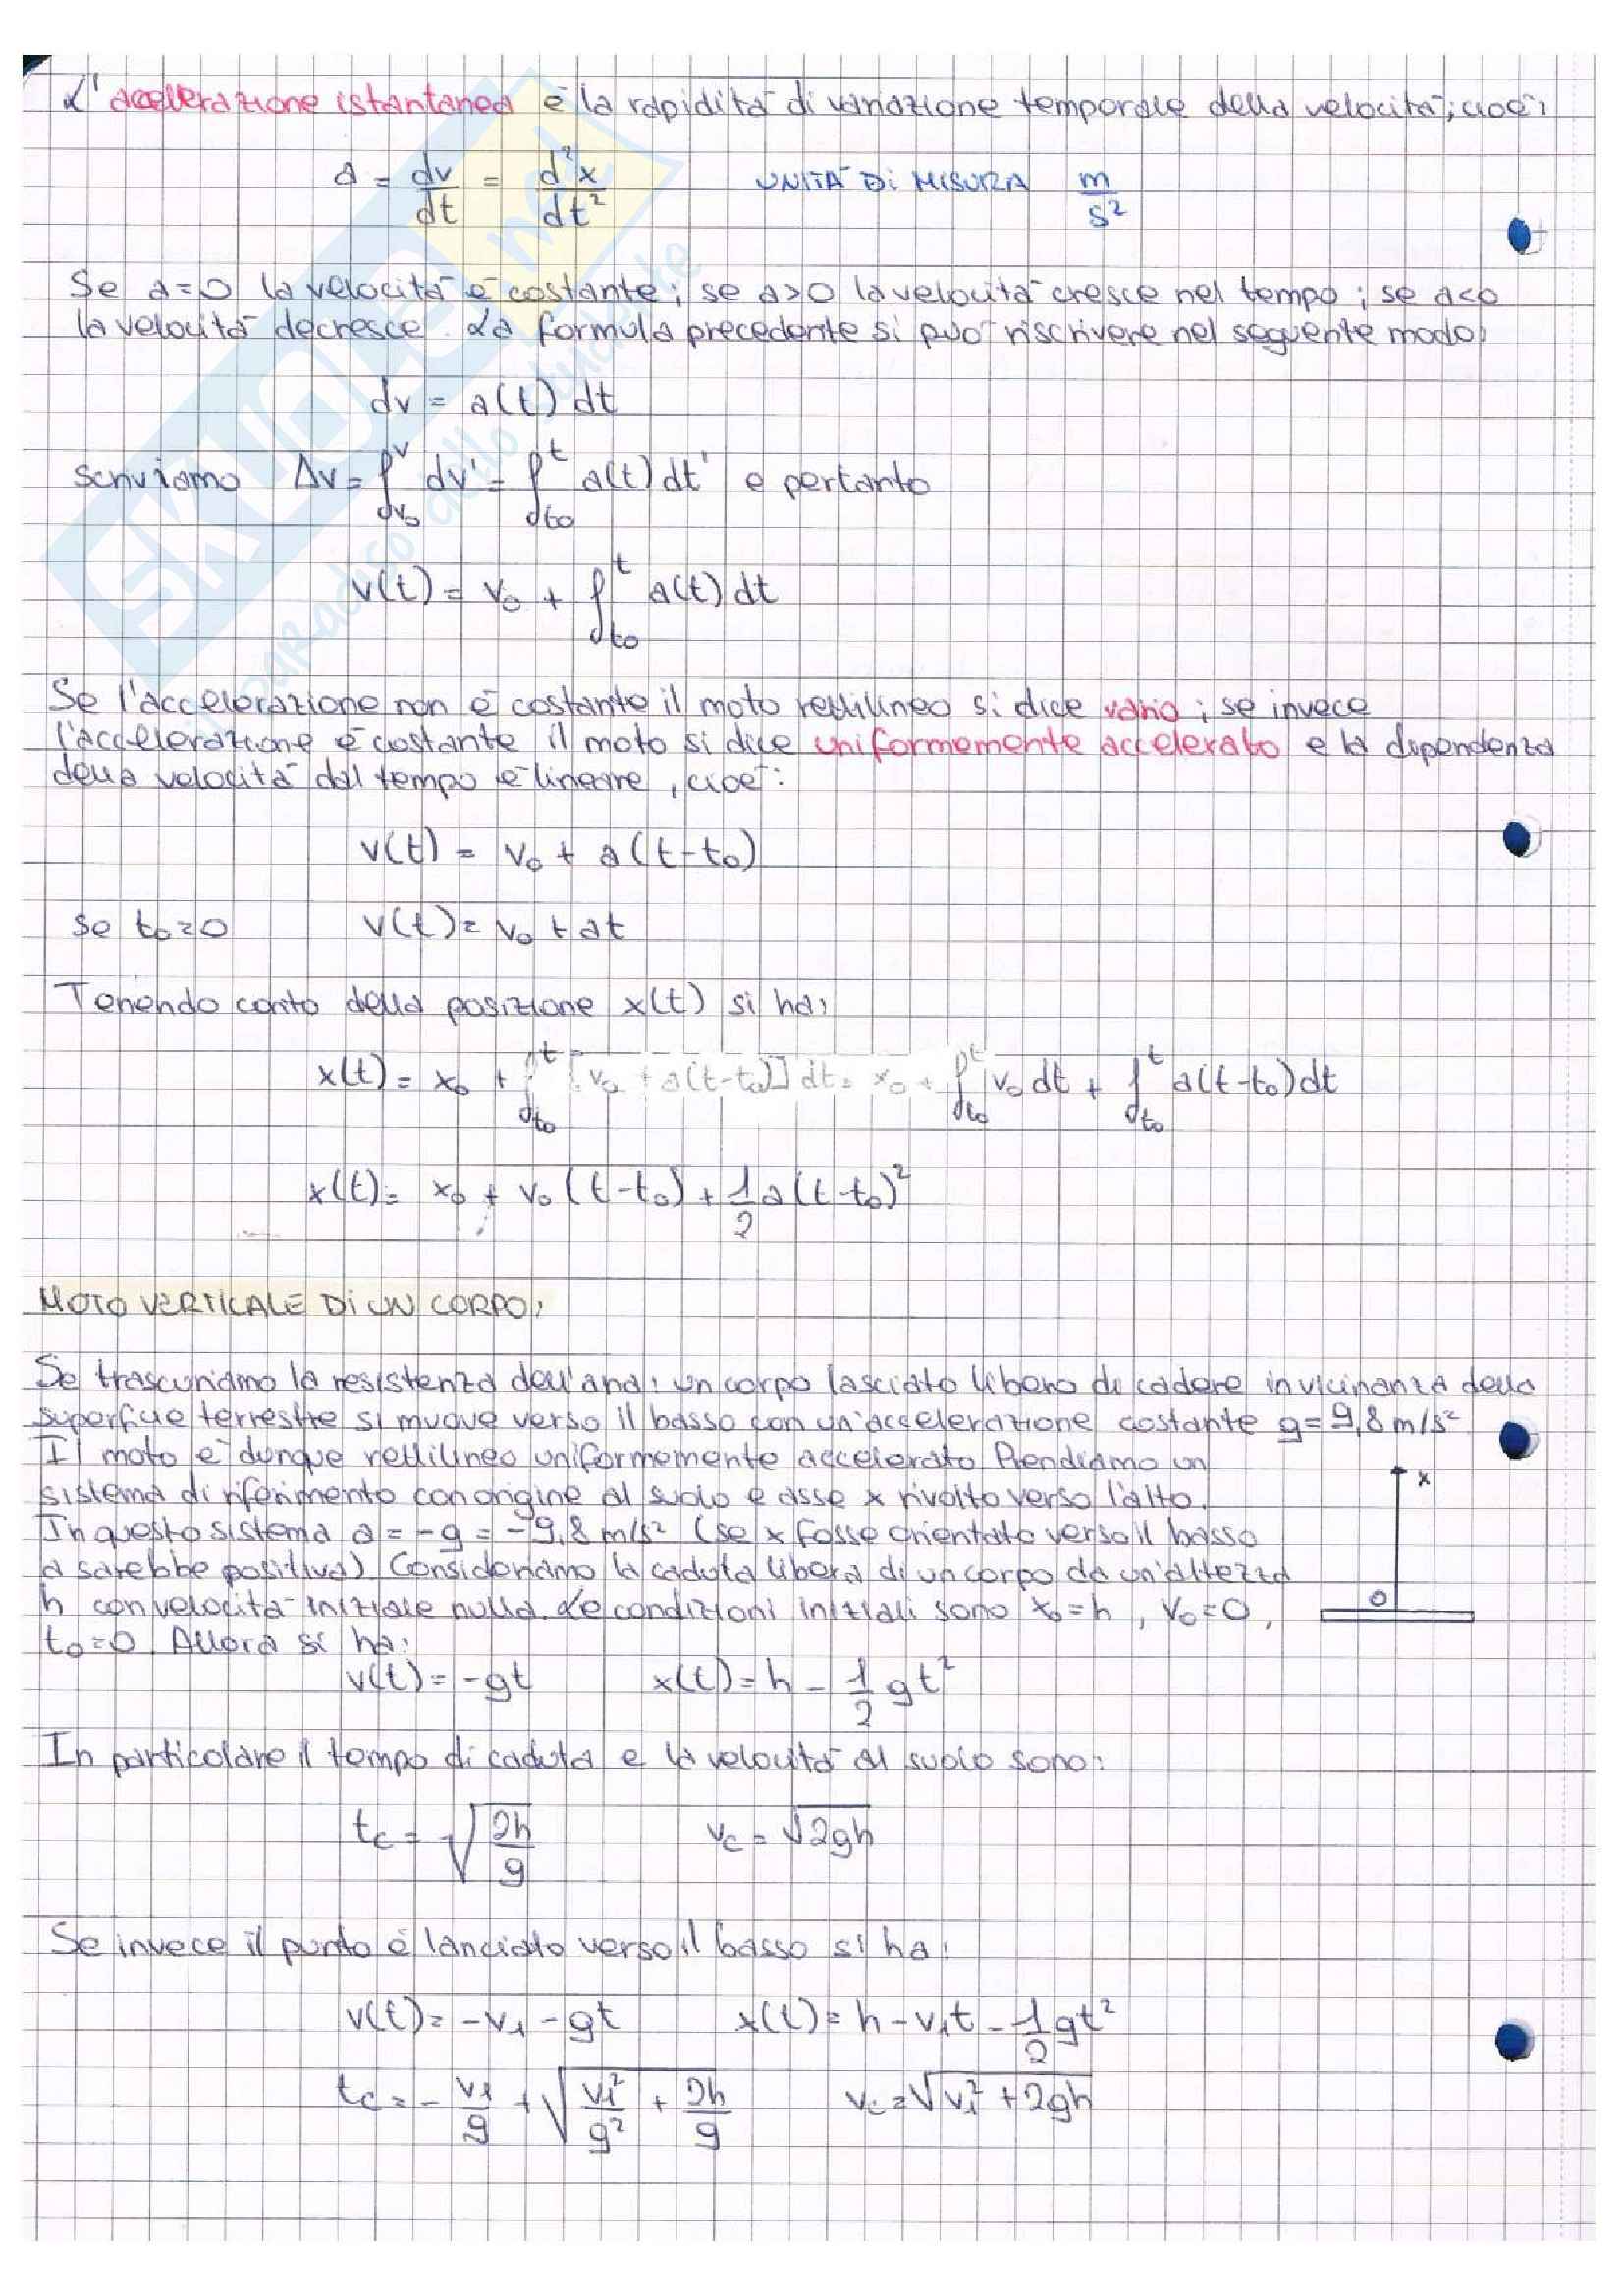 L'accelerazione istantanea è la rapidità di variazione temporale della velocità, cioè:
a = dv/dt = d²x/dt² UNITÀ DI MISURA m/s²
Se a=0 la velocità è costante; se a>0 la velocità cresce nel tempo; se a<0
la velocità decresce. La formula precedente si può riscrivere nel seguente modo:
dv = a(t) dt
Scriviamo Δv = ∫_{v₀}^{v} dv' = ∫_{t₀}^{t} a(t) dt' e pertanto
v(t) = v₀ + ∫_{t₀}^{t} a(t) dt
Se l'accelerazione non è costante il moto rettilineo si dice vario; se invece
l'accelerazione è costante il moto si dice uniformemente accelerato e la dipendenza
della velocità dal tempo è lineare, cioè:
v(t) = v₀ + a(t-t₀)
Se t₀=0 v(t) = v₀ + at
Tenendo conto della posizione x(t) si ha:
x(t) = x₀ + ∫_{t₀}^{t} [v₀ + a(t-t₀)] dt = x₀ + ∫_{t₀}^{t} v₀ dt + ∫_{t₀}^{t} a(t-t₀) dt
x(t) = x₀ + v₀ (t-t₀) + 1/2 a(t-t₀)²
MOTO VERTICALE DI UN CORPO:
Se trascuriamo la resistenza dell'aria: un corpo lasciato libero di cadere in vicinanza della
superficie terrestre si muove verso il basso con un'accelerazione costante g=9,8 m/s²
Il moto è dunque rettilineo uniformemente accelerato. Prendiamo un
sistema di riferimento con origine al suolo e asse x rivolto verso l'alto.
In questo sistema a = -g = -9,8 m/s² (se x fosse orientato verso il basso
a sarebbe positiva). Consideriamo la caduta libera di un corpo da un'altezza
h con velocità iniziale nulla. Le condizioni iniziali sono x₀=h, v₀=0,
t₀=0. Allora si ha:
x
O
v(t) = -gt x(t) = h - 1/2 gt²
In particolare il tempo di caduta e la velocità al suolo sono:
t_c = √(2h/g) v_c = √(2gh)
Se invece il punto è lanciato verso il basso si ha:
v(t) = -v₁ - gt x(t) = h - v₁t - 1/2 gt²
t_c = - v₁/g + √(v₁²/g² + 2h/g) v_c = √(v₁² + 2gh)
SKUOLA.net
il paradiso dello studente